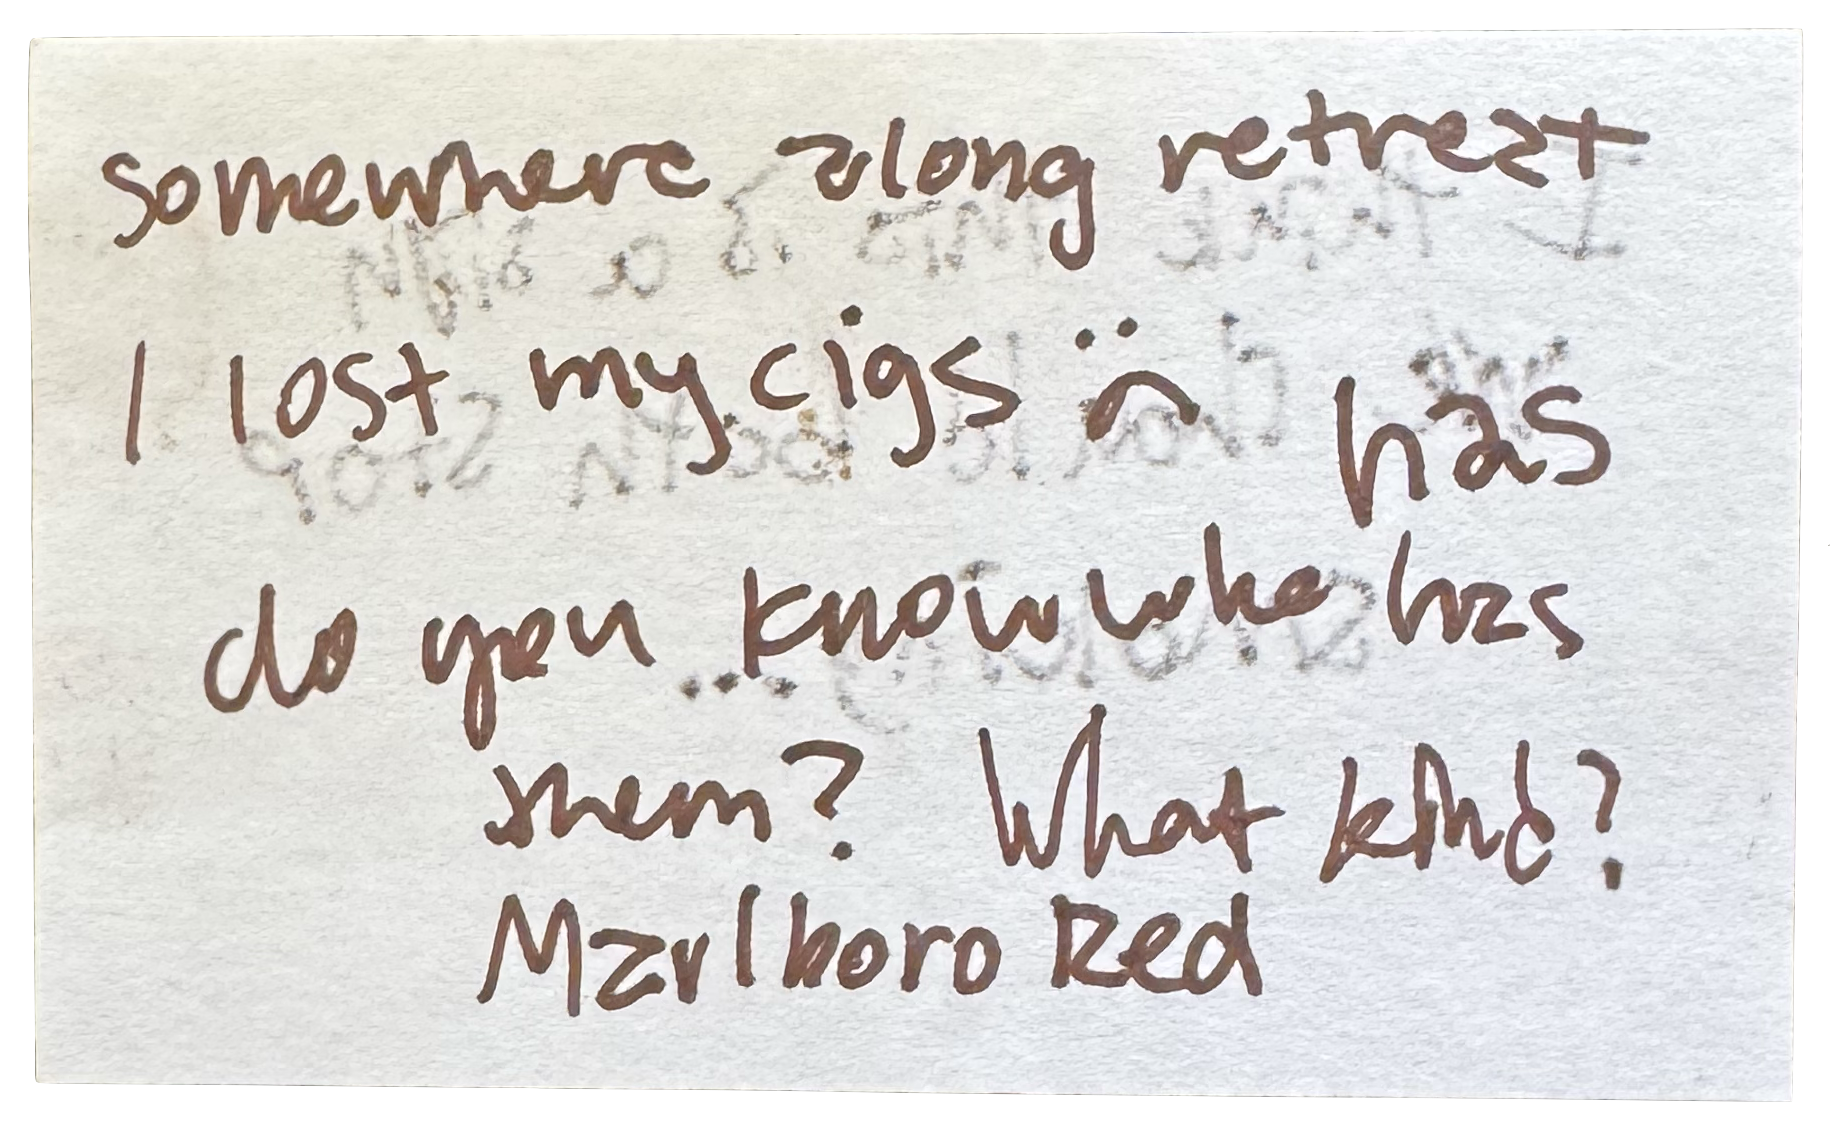 somewhere along retreat
I lost my cigs :( has
do you know who has
them? What kind?
Marlboro Red